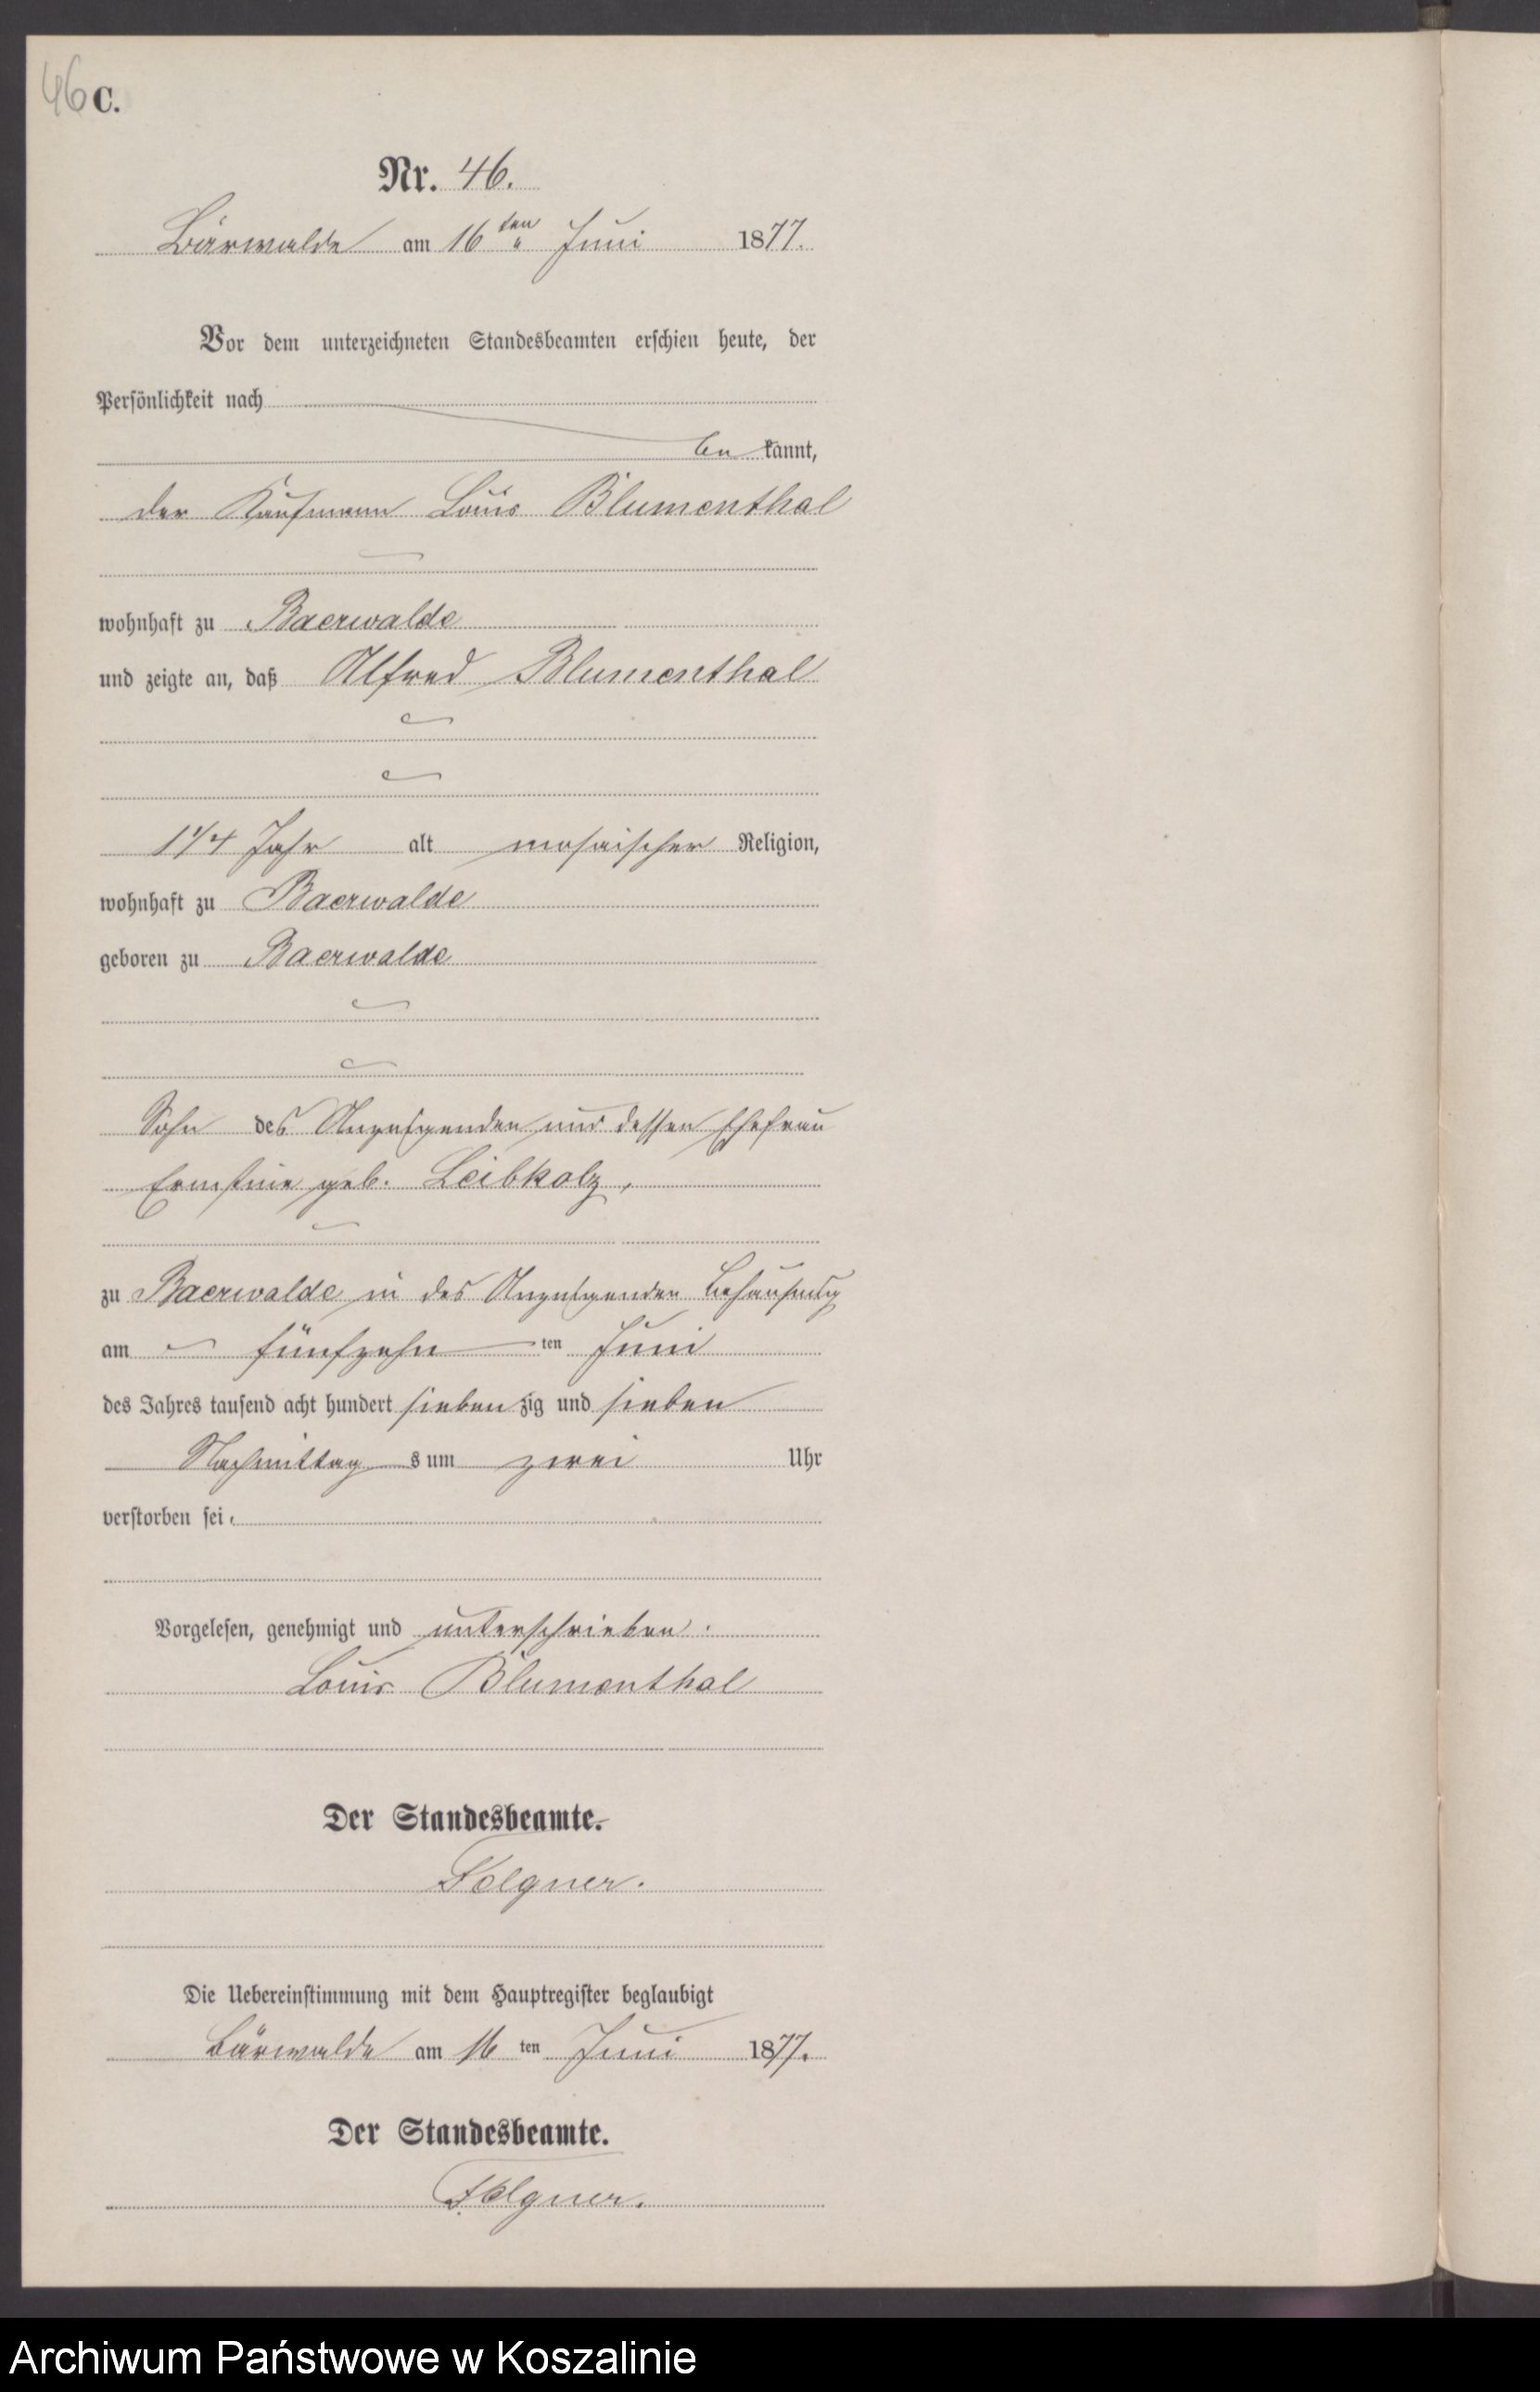 46 C.
Nr. 46.
Bärwalde am 16ten Juni 1877.
Vor dem unterzeichneten Standesbeamten erschien heute, der
Persönlichkeit nach
be kannt,
der Kaufmann Louis Blumenthal
wohnhaft zu Baerwalde
und zeigte an, daß Alfred Blumenthal
1 1/4 Jahr alt mosaischer Religion,
wohnhaft zu Baerwalde
geboren zu Baerwalde
Sohn des Anzeigenden und dessen Ehefrau
Ernstine geb. Leibholz,
zu Baerwalde in des Anzeigenden Behausung
am fünfzehn ten Juni
des Jahres tausend acht hundert sieben zig und sieben
Nachmittag s um zwei Uhr
verstorben sei.
Vorgelesen, genehmigt und unterschrieben.
Louis Blumenthal
Der Standesbeamte.
Folgner.
Die Uebereinstimmung mit dem Hauptregister beglaubigt
Bärwalde am 16 ten Juni 1877.
Der Standesbeamte.
Folgner.
Archiwum Państwowe w Koszalinie